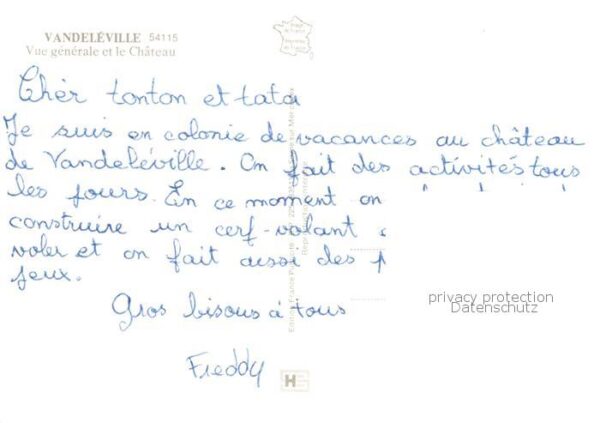 VANDELÉVILLE 54115
Vue générale et le Château
Chèr tonton et tata
Je suis en colonie de vacances au château
de Vandeléville. On fait des activités tous
les jours. En ce moment on
construire un cerf-volant
voler et on fait aussi des
jeux.
Gros bisous à tous
Freddy
privacy protection
Datenschutz